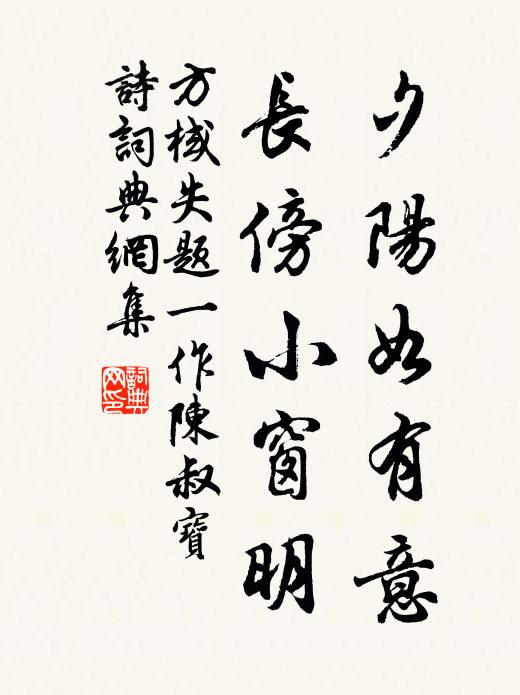 夕陽如有意
長傍小窗明
方棫失題一作陳叔寶
詩詞典網集
詞典網印